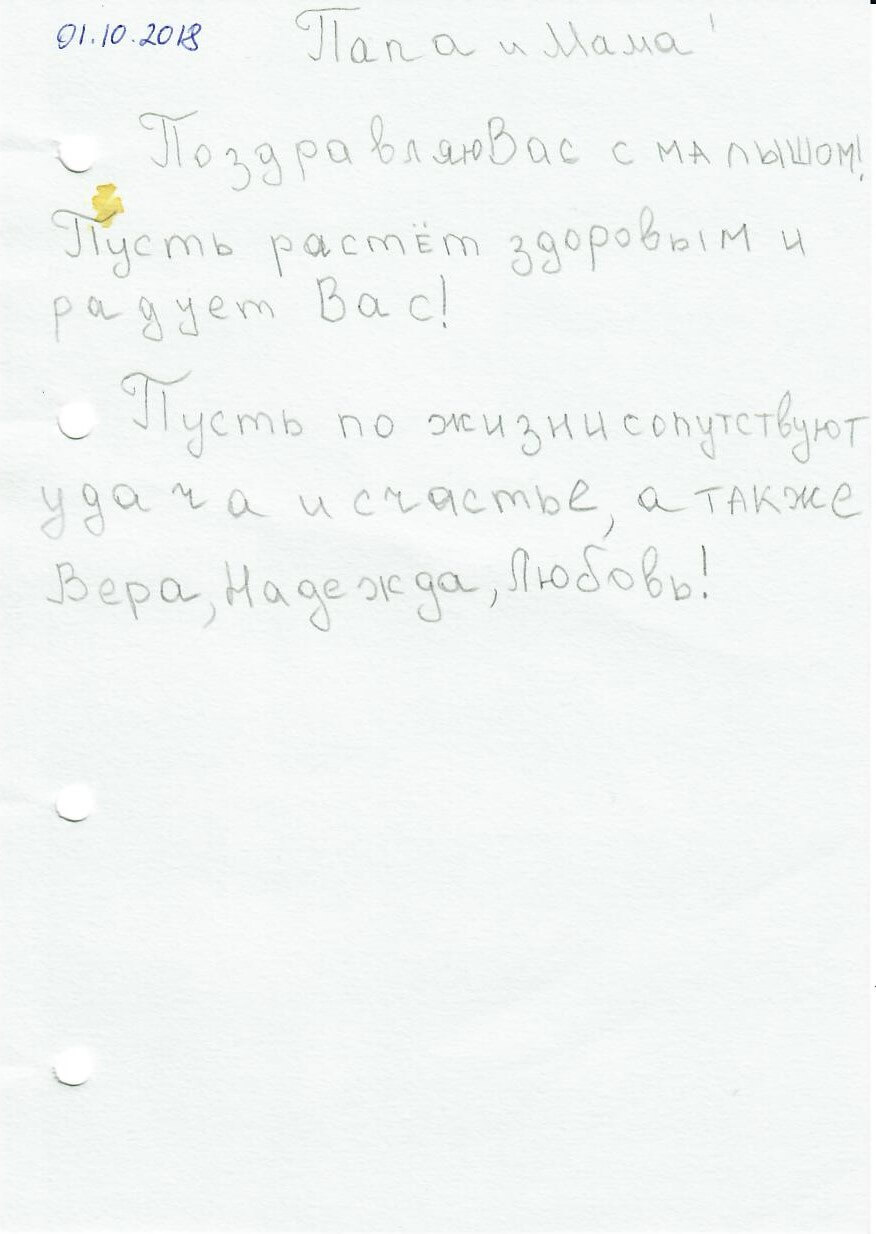 01.10.2018
Папа и Мама!
Поздравляю Вас с малышом!
Пусть растёт здоровым и
радует Вас!
Пусть по жизни сопутствуют
удача и счастье, а также
Вера, Надежда, Любовь!